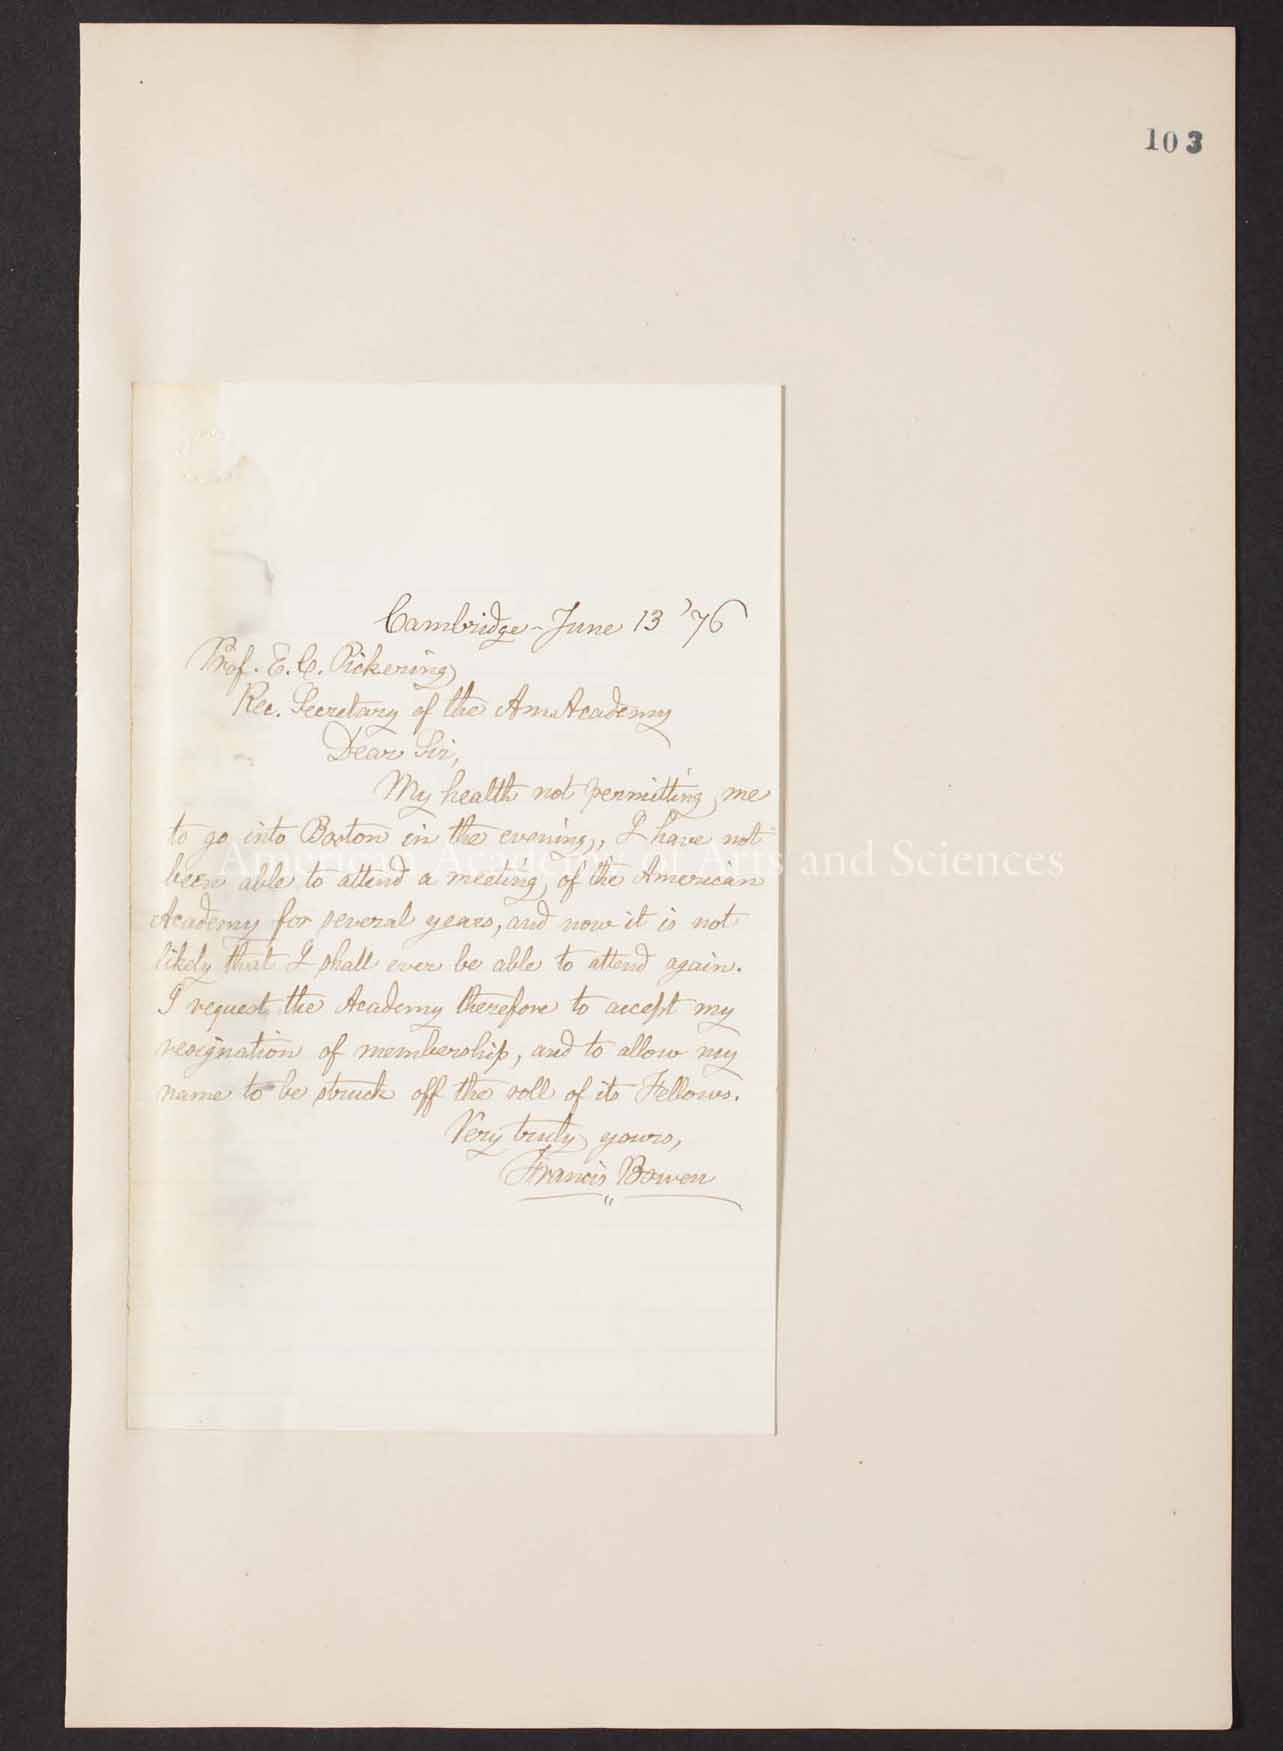 103
Cambridge - June 13 '76
Prof. E. C. Pickering
Rec. Secretary of the Am. Academy
Dear Sir,
My health not permitting me
to go into Boston in the evening, I have not
been able to attend a meeting of the American
Academy for several years, and now it is not
likely that I shall ever be able to attend again.
I request the Academy therefore to accept my
resignation of membership, and to allow my
name to be struck off the roll of its Fellows.
Very truly yours,
Francis Bowen
American Academy of Arts and Sciences